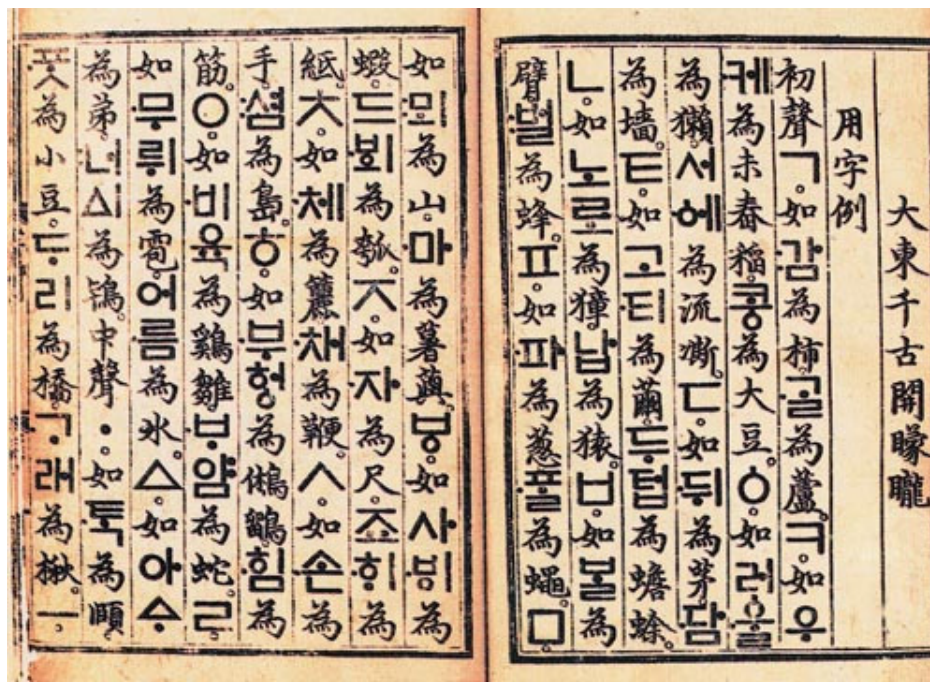 大東千古開矇矓
用字例
初聲ㄱ。如감為柿。ᄀᆞᆯ為蘆。ㅋ。如우
케為未舂稻。코ᇰ為大豆。ㆁ。如러ᅌᅮᆯ
為獺。서ᅌᅦ為流凘。ㄷ。如뒤為茅。담
為墻。ㅌ。如고티為繭。두텁為蟾蜍。
ㄴ。如노로為獐。납為猿。ㅂ。如ᄇᆞᆯ為
臂。벌為蜂。ㅍ。如파為葱。ᄑᆞᆯ為蠅。ㅁ。
如뫼為山。마為薯藇。ㅸ。如사ᄫᅵ為
蝦。드ᄫᅴ為瓠。ㅈ。如자為尺。죠ᄒᆡ為
紙。ㅊ。如체為簏。채為鞭。ㅅ。如손為
手。셤為島。ㅎ。如부허ᇰ為鵂鶹。힘為
筋。ㅇ。如비육為鷄雛。ᄇᆞ얌為蛇。ㄹ。
如무뤼為雹。어름為氷。ㅿ。如아ᅀᆞ
為弟。너ᅀᅵ為鴇。中聲ㆍ。如ᄐᆞᆨ為頤。
ᄑᆞᆺ為小豆。ᄃᆞ리為橋。ᄀᆞ래為楸。ㅡ。